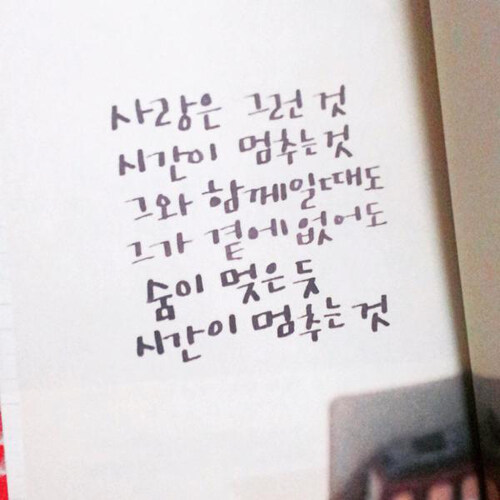 사랑은 그런 것
시간이 멈추는것
그와 함께일때도
그가 곁에 없어도
숨이 멎은 듯
시간이 멈추는 것